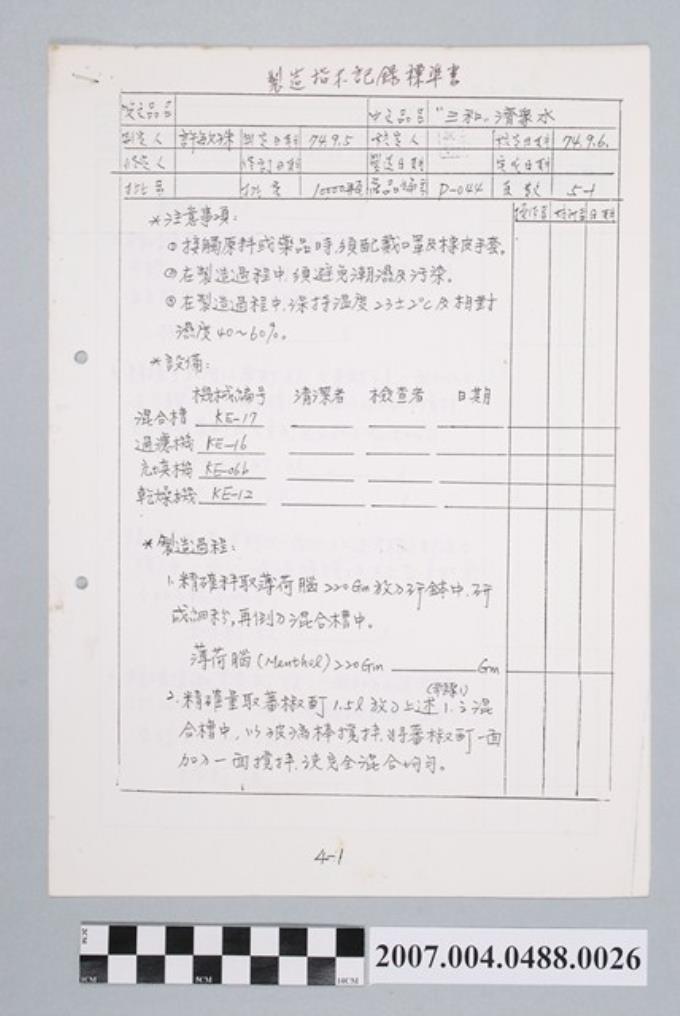 製造指示記錄標準書
英文品名 中文品名 "三和"濟眾水
制定人 許敏珠 制定日期 74.9.5 核定人 核定日期 74.9.6.
修定人 修訂日期 製造日期 完成日期
批号 批量 10000瓶 產品編号 D-044 頁數 5-1
操作者 核對者 日期
*注意事項:
①接觸原料或藥品時,須配戴口罩及橡皮手套。
②在製造過程中,須避免潮濕及污染。
③在製造過程中,保持溫度23±2℃及相對
濕度40~60%。
*設備:
機械編号 清潔者 檢查者 日期
混合槽 KE-17
過濾機 KE-16
充填機 KE-06b
乾燥機 KE-12
*製造過程:
1.精確秤取薄荷腦220Gm放入研鉢中,研
成細粉,再倒入混合槽中。
薄荷腦(Menthol)220Gm Gm
2.精確量取蕃椒酊1.5l放入上述1.之混
合槽中,以玻璃棒攪拌,將蕃椒酊一面
加入一面攪拌,使完全混合均勻。
4-1
2CM
1CM 5CM 10CM
2007.004.0488.0026